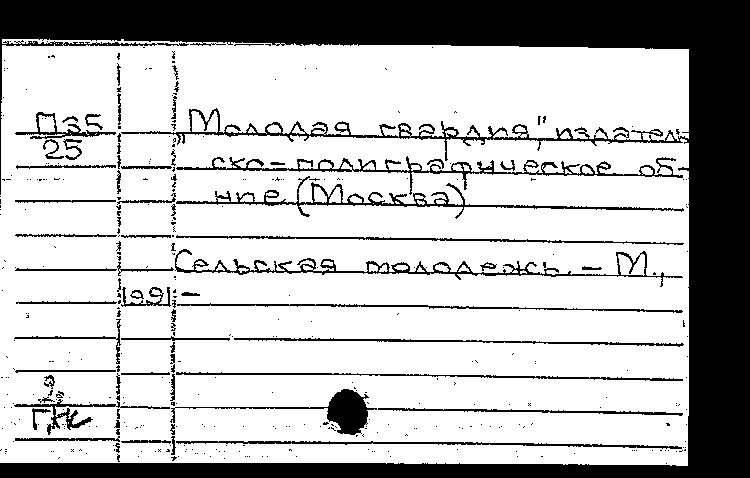 П35
25
„Молодая гвардия", издатель
ско-полиграфическое об-
ние (Москва)
Сельская молодежь. – М.,
1991 –
2